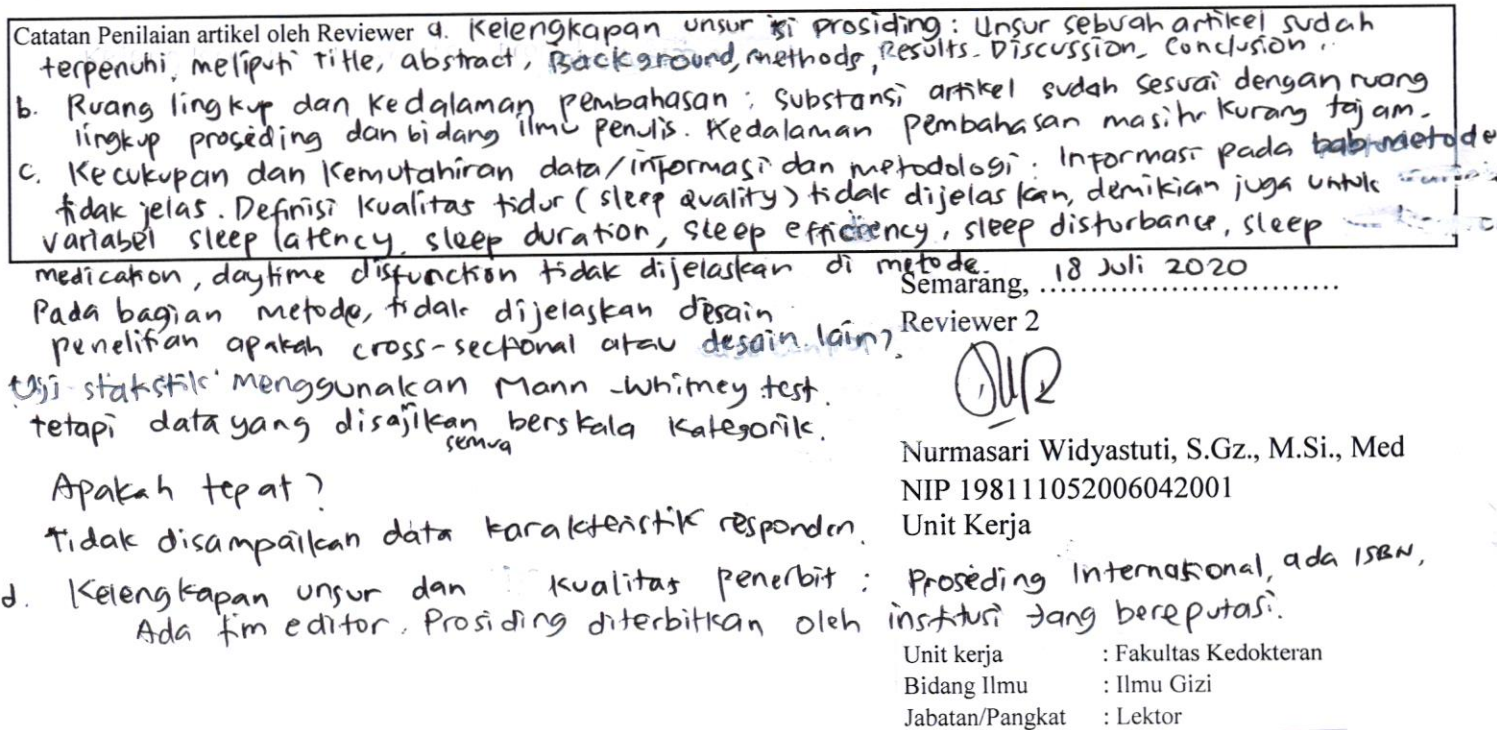 Catatan Penilaian artikel oleh Reviewer a. Kelengkapan unsur isi prosiding : Unsur sebuah artikel sudah
terpenuhi, meliputi title, abstract, Background, methods, Results. Discussion, Conclusion.
b. Ruang lingkup dan Kedalaman pembahasan : Substansi artikel sudah sesuai dengan ruang
lingkup proseding dan bidang ilmu penulis. Kedalaman pembahasan masih kurang tajam.
c. Kecukupan dan Kemutahiran data/informasi dan metodologi : Informasi pada bab metode
tidak jelas. Definisi Kualitas tidur (sleep quality) tidak dijelaskan, demikian juga untuk
variabel sleep latency, sleep duration, sleep efficiency, sleep disturbance, sleep
medication, daytime disfunction tidak dijelaskan di metode.
Semarang, 18 Juli 2020
Pada bagian metode, tidak dijelaskan desain
penelitian apakah cross-sectional atau desain lain?
Reviewer 2
Uji statistik menggunakan Mann-Whitney test.
tetapi data yang disajikan semua berskala kategorik.
Nurmasari Widyastuti, S.Gz., M.Si., Med
Apakah tepat?
NIP 198111052006042001
Tidak disampaikan data karakteristik responden.
Unit Kerja
d. Kelengkapan unsur dan kualitas penerbit : Proseding Internasional, ada ISBN,
Ada tim editor. Prosiding diterbitkan oleh institusi yang bereputasi.
Unit kerja : Fakultas Kedokteran
Bidang Ilmu : Ilmu Gizi
Jabatan/Pangkat : Lektor